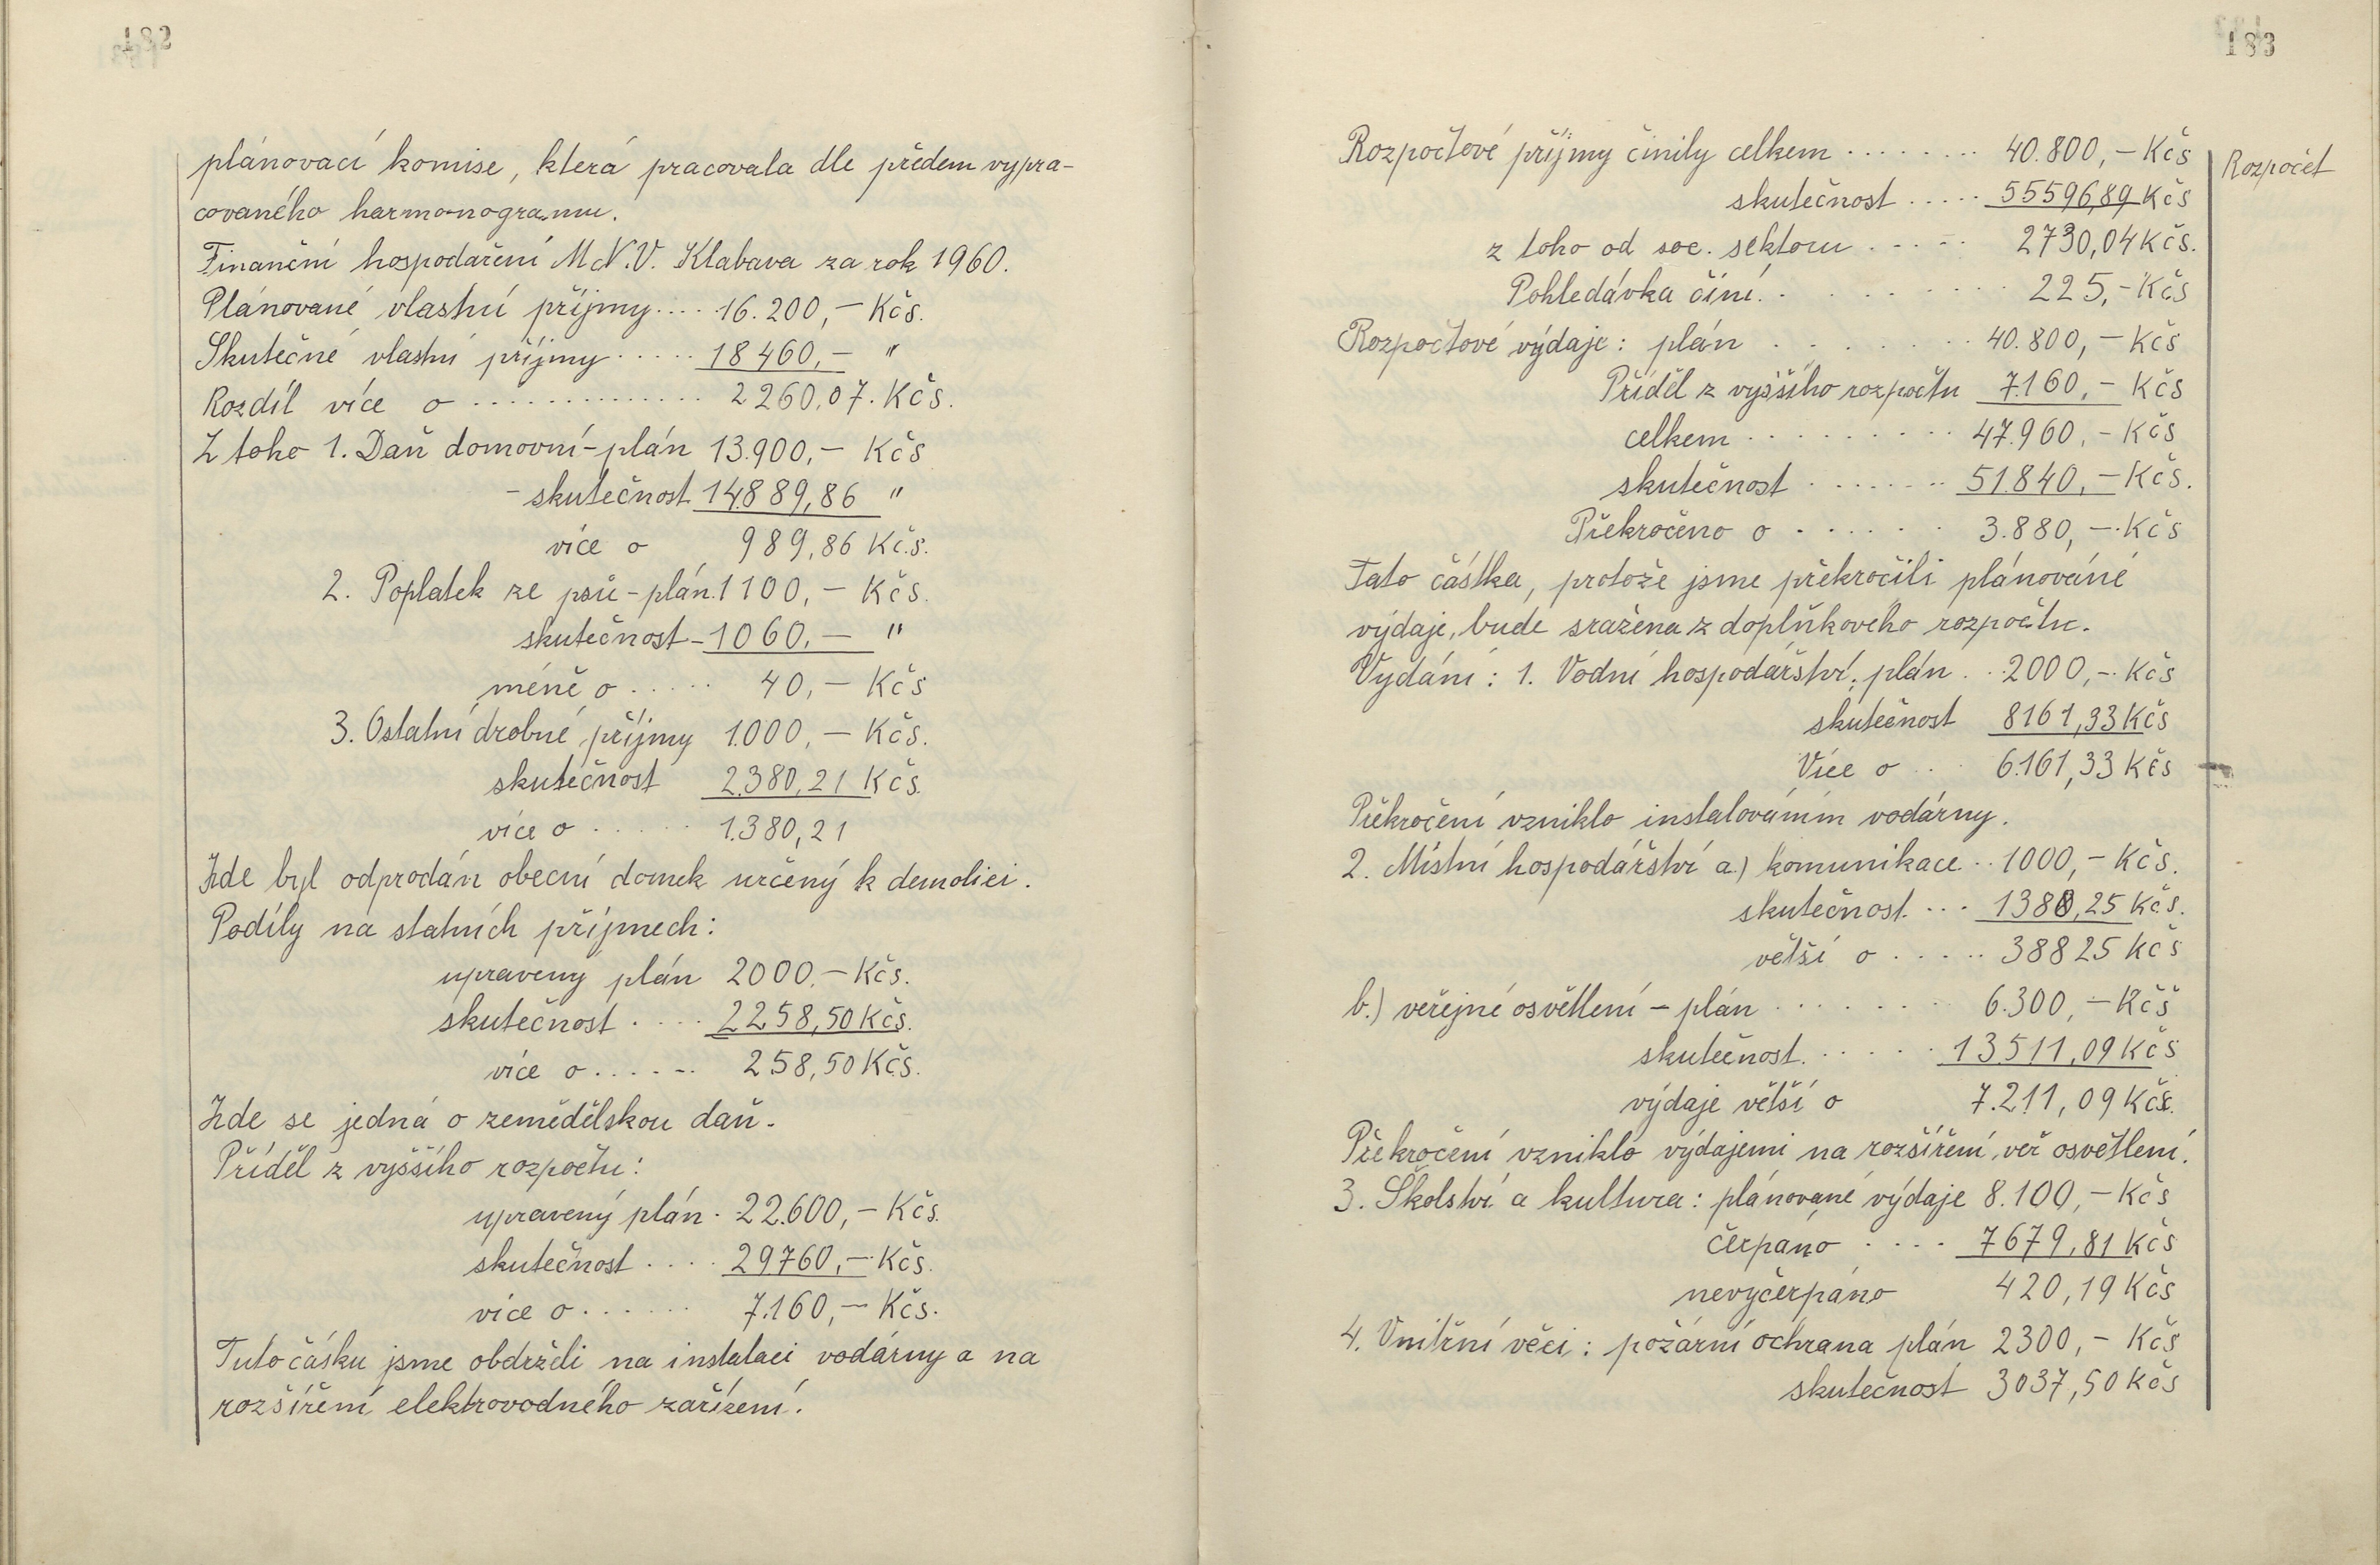 182
plánovací komise, která pracovala dle předem vypra-
covaného harmonogramu.
Finanční hospodaření M.N.V. Klabava za rok 1960.
Plánované vlastní příjmy.... 16.200,- Kčs.
Skutečné vlastní příjmy..... 18460,- "
Rozdíl více o .............. 2260,07. Kčs.
Z toho 1. Daň domovní-plán 13.900,- Kčs
- skutečnost 14889,86 "
více o 989,86 Kčs.
2. Poplatek ze psů - plán. 1100,- Kčs.
skutečnost - 1060,- "
méně o ..... 40,- Kčs
3. Ostatní drobné příjmy 1.000,- Kčs.
skutečnost 2.380,21 Kčs.
více o ..... 1.380,21
Zde byl odprodán obecní domek určený k demolici.
Podíly na statních příjmech:
upraveny plán 2000.- Kčs.
skutečnost .... 2258,50 Kčs.
více o ...... 258,50 Kčs.
Zde se jedná o zemědělskou daň.
Příděl z vyššího rozpočtu:
upravený plán . 22.600,- Kčs.
skutečnost .... 29760,- Kčs.
více o ...... 7.160,- Kčs.
Tuto čásku jsme obdrželi na instalaci vodárny a na
rozšíření elektrovodného zařízení.
183
Rozpočet
Rozpočtové příjmy činily celkem ........ 40.800,- Kčs
skutečnost ..... 55596,89 Kčs
z toho od soc. sektoru ..... 2730,04 Kčs.
Pohledávka činí. ......... 225,- Kčs
Rozpočtové výdaje: plán ....... 40.800,- Kčs
Příděl z vyššího rozpočtu 7.160,- Kčs
celkem ......... 47.960,- Kčs
skutečnost ....... 51.840,- Kčs.
Překročeno o ...... 3.880,- Kčs
Tato částka, protože jsme překročili plánované
výdaje, bude sražena z doplňkového rozpočtu.
Vydání: 1. Vodní hospodářství, plán .. 2000,- Kčs
skutečnost 8161,33 Kčs
Více o .. 6.161,33 Kčs
Překročení vzniklo instalováním vodárny.
2. Místní hospodářství a.) komunikace .. 1000,- Kčs.
skutečnost ... 1388,25 Kčs.
větší o ..... 388 25 Kčs
b.) veřejné osvětlení - plán ....... 6.300,- Kčs
skutečnost ..... 13511,09 Kčs
výdaje větší o 7.211,09 Kčs.
Překročení vzniklo výdajemi na rozšíření veř osvětlení.
3. Školství a kultura: plánované výdaje 8.100,- Kčs
čerpáno .... 7679,81 Kčs
nevyčerpáno 420,19 Kčs
4. Vnitřní věci: požární ochrana plán 2300,- Kčs
skutečnost 3037,50 Kčs